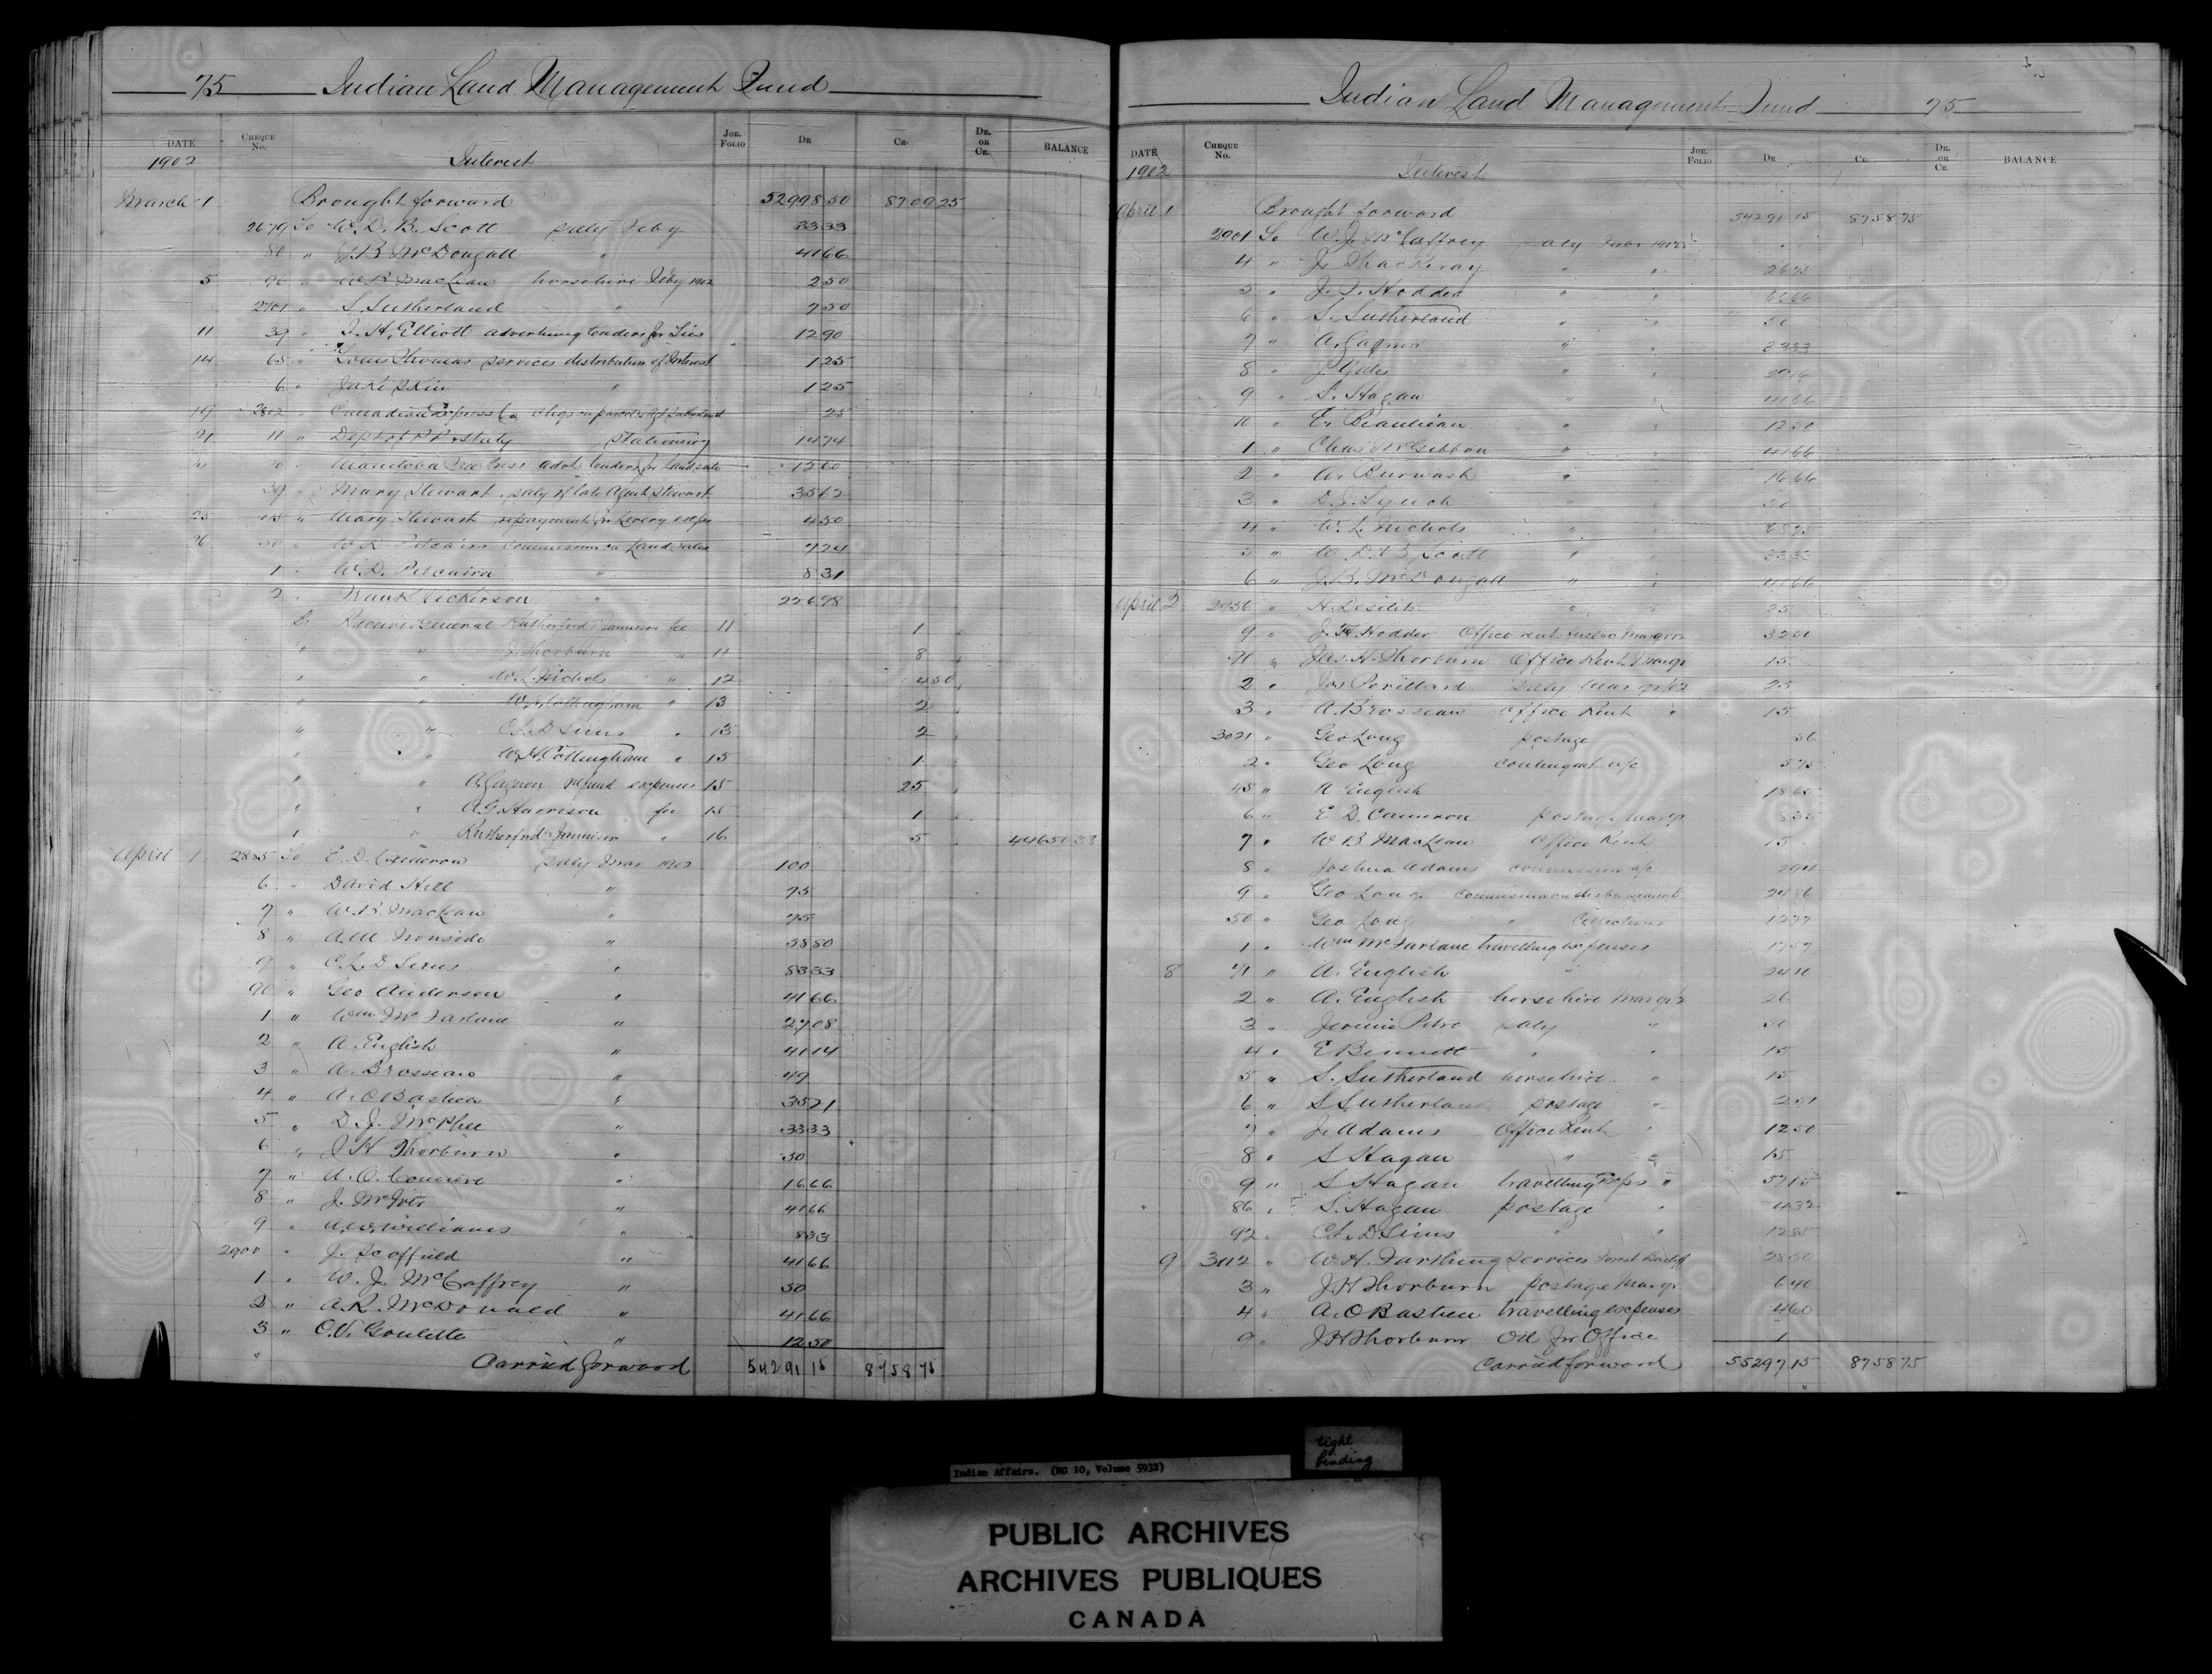 75 Indian Land Management Fund
DATE CHEQUE No. JOR. FOLIO DR CR. DR. OR CR. BALANCE
1902 Interest
March 1 Brought forward 52998 50 8709 25
2679 To W. D. B. Scott saly Feby 33 33
80 " J. B. McDougall " 41 66
5 96 " W. B. MacLean horsehire Feby 1902 2 50
2701 " S. Sutherland " 7 50
11 39 " J. H. Elliott advertising tenders for 12 90
14 65 " Louis Thomas services distribution of Interest 1 25
6 " Jake " 1 25
19 2802 " Canadian Express Co chgs on parcels 25
21 11 " Dept of P. P. & Staty stationery 14 74
" Manitoba Free Press advt tenders for land sale 12 60
39 " Mary Stewart saly of late Agent Stewart 35 62
25 " Mary Stewart repayment for Livery exps 4 50
26 50 " W. D. Pitcairn commission on Land sales 7 24
1 " W. D. Pitcairn " 8 31
2 " Frank Nickerson " 226 98
By Receiver General Rutherford & Jamieson fee 11 1
" " J. Thorburn " 11 8
" " W. L. Nichols " 12 4 50
" " W. H. Cottingham " 13 2
" " C. L. D. Sims " 13 2
" " W. H. Cottingham " 15 1
" " A. Gagnon refund expenses 15 25
" " A. G. Harrison fee 15 1
" " Rutherford & Jamieson " 16 5 44650 33
April 1 2885 To E. D. Cameron saly Mar 1902 100
6 " David Hill " 75
7 " W. B. MacLean " 75
8 " A. M. Ironside " 58 50
9 " C. L. D. Sims " 83 33
90 " Geo Anderson " 41 66
1 " Wm McFarlane " 27 08
2 " A. English " 41 14
3 " A. Brosseau " 49
4 " A. O Bastien " 35 21
5 " D. J. McPhee " 33 33
6 " J H Thorburn " 50
7 " A. O. " 16 66
8 " J. McIver " 41 66
9 " Williams " 8 33
2900 " J. Scoffield " 41 66
1 " W. J. McCaffrey " 50
2 " A. R. McDonald " 41 66
3 " O. V. Goulette " 12 50
Carried forward 54291 15 8758 75
Indian Land Management Fund 75
DATE CHEQUE No. JOR. FOLIO DR CR. DR. OR CR. BALANCE
1902 Interest
April 1 Brought forward 54291 15 8758 75
2901 To W. J. McCaffrey saly Mar 1902
4 " J. Thackeray " "
5 " J. F. Hodder " " 66 66
6 " S. Sutherland " " 50
7 " A. Gagnon " " 33 33
8 " J. Yates " " 29 16
9 " S. Hagan " " 41 66
10 " E. Beaulieau " " 12 50
1 " Chas McGibbon " " 41 66
2 " A. Burwash " " 16 66
3 " D. J. Lynch " " 50
4 " W. L. Nichols " "
5 " W. D. B. Scott " " 33 33
6 " J. B. McDougall " " 41 66
April 2 2956 " H. Desilets " " 25
9 " J. H. Hodder Office rent 32 00
71 " Jas. H. Thorburn Office Rent 15
2 " Jos Perillard saly Mar 25
3 " A. Brosseau Office Rent " 15
3021 " Geo Long postage 56
2 " Geo Long contingent a/c 5 75
45 " A English 18 65
6 " E D. Cameron postage Mar
7 " W B MacLean Office Rent 15
8 " Joshua Adams commission a/c
9 " Geo Long commission on disbursements 24 86
50 " Geo Long " Collections 12 77
1 " Wm McFarlane travelling expenses
8 71 " A. English " 24 10
2 " A. English horsehire 26
3 " Jeremie Petre saly " 50
4 " E Bennett " " 15
5 " S. Sutherland horsehire " 15
6 " S Sutherland postage "
7 " J. Adams Office Rent " 12 50
8 " S Hagan " " 15
9 " S Hagan travelling Exps " 57 15
" 86 " S. Hagan postage " 4 32
92 " C. L. D Sims " " 12 85
9 3112 " W. H. Farthing services
3 " J H Thorburn postage Mar 6 40
4 " A. O Bastien travelling expenses 4 60
9 " J H Thorburn Oil for Office 1
Carried forward 55297 15 8758 75
tight binding
Indian Affairs. (RG 10, Volume 5932)
PUBLIC ARCHIVES
ARCHIVES PUBLIQUES
CANADA